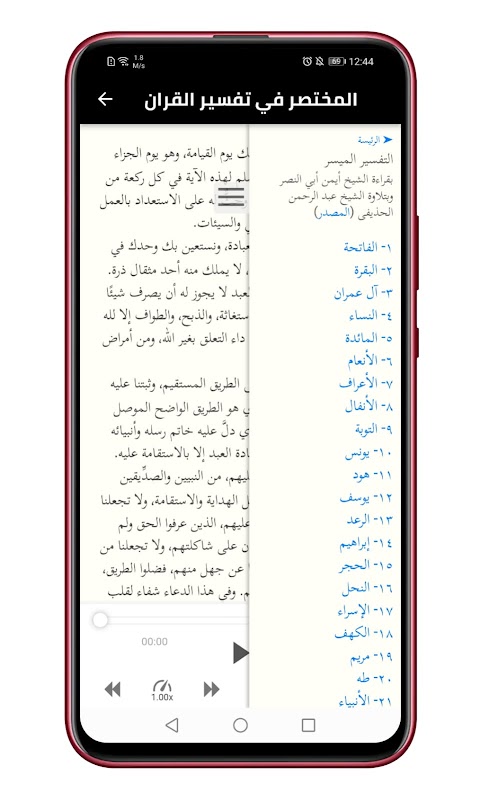 1.8
M/s
69
12:44
المختصر في تفسير القران
➤ الرئيسة
التفسير الميسر
بقراءة الشيخ أيمن أبي النصر
وبتلاوة الشيخ عبد الرحمن
الحذيفي (المصدر)
١- الفاتحة
٢- البقرة
٣- آل عمران
٤- النساء
٥- المائدة
٦- الأنعام
٧- الأعراف
٨- الأنفال
٩- التوبة
١٠- يونس
١١- هود
١٢- يوسف
١٣- الرعد
١٤- إبراهيم
١٥- الحجر
١٦- النحل
١٧- الإسراء
١٨- الكهف
١٩- مريم
٢٠- طه
٢١- الأنبياء
يوم القيامة، وهو يوم الجزاء
لهذه الآية في كل ركعة من
على الاستعداد بالعمل
والسيئات.
ونستعين بك وحدك في
لا يملك منه أحد مثقال ذرة.
لا يجوز له أن يصرف شيئًا
والذبح، والطواف إلا لله
داء التعلق بغير الله، ومن أمراض
الطريق المستقيم، وثبتنا عليه
هو الطريق الواضح الموصل
دلَّ عليه خاتم رسله وأنبيائه
العبد إلا بالاستقامة عليه.
من النبيين والصدِّيقين
الهداية والاستقامة، ولا تجعلنا
الذين عرفوا الحق ولم
على شاكلتهم، ولا تجعلنا من
عن جهل منهم، فضلوا الطريق،
وفي هذا الدعاء شفاء لقلب
00:00
1.00x